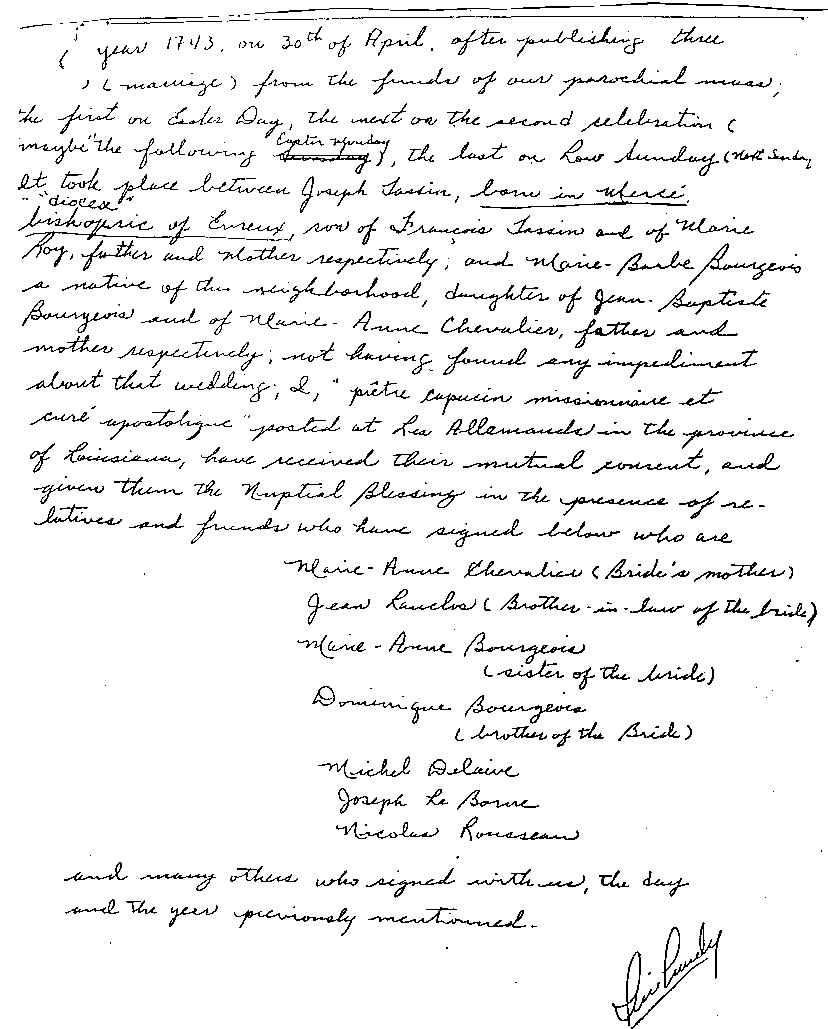 ( year 1743, on 30th of April, after publishing three
) (marriage) from the funds of our parochial mass;
the first on Easter Day, the next on the second celebration (
maybe "the following Easter Monday Sunday), the last on Low Sunday (Next Sunday
It took place between Joseph Tassin, born in Mercé,
"diocese"
bishopric of Evreux, son of François Tassin and of Marie
Roy, father and Mother respectively; and Marie-Barbe Bourgeois
a native of this neighborhood, daughter of Jean-Baptiste
Bourgeois and of Marie-Anne Chevalier, father and
mother respectively; not having found any impediment
about that wedding; I, "prêtre capucin missionnaire et
curé apostolique" posted at Les Allemands in the province
of Louisiana, have received their mutual consent, and
given them the Nuptial Blessing in the presence of re-
latives and friends who have signed below who are
Marie-Anne Chevalier (Bride's mother)
Jean Lanclos (Brother-in-law of the bride)
Marie-Anne Bourgeois
(sister of the bride)
Dominique Bourgeois
(brother of the Bride)
Michel Delaive
Joseph Le Borne
Nicolas Rousseau
and many others who signed with us, the day
and the year previously mentionned.